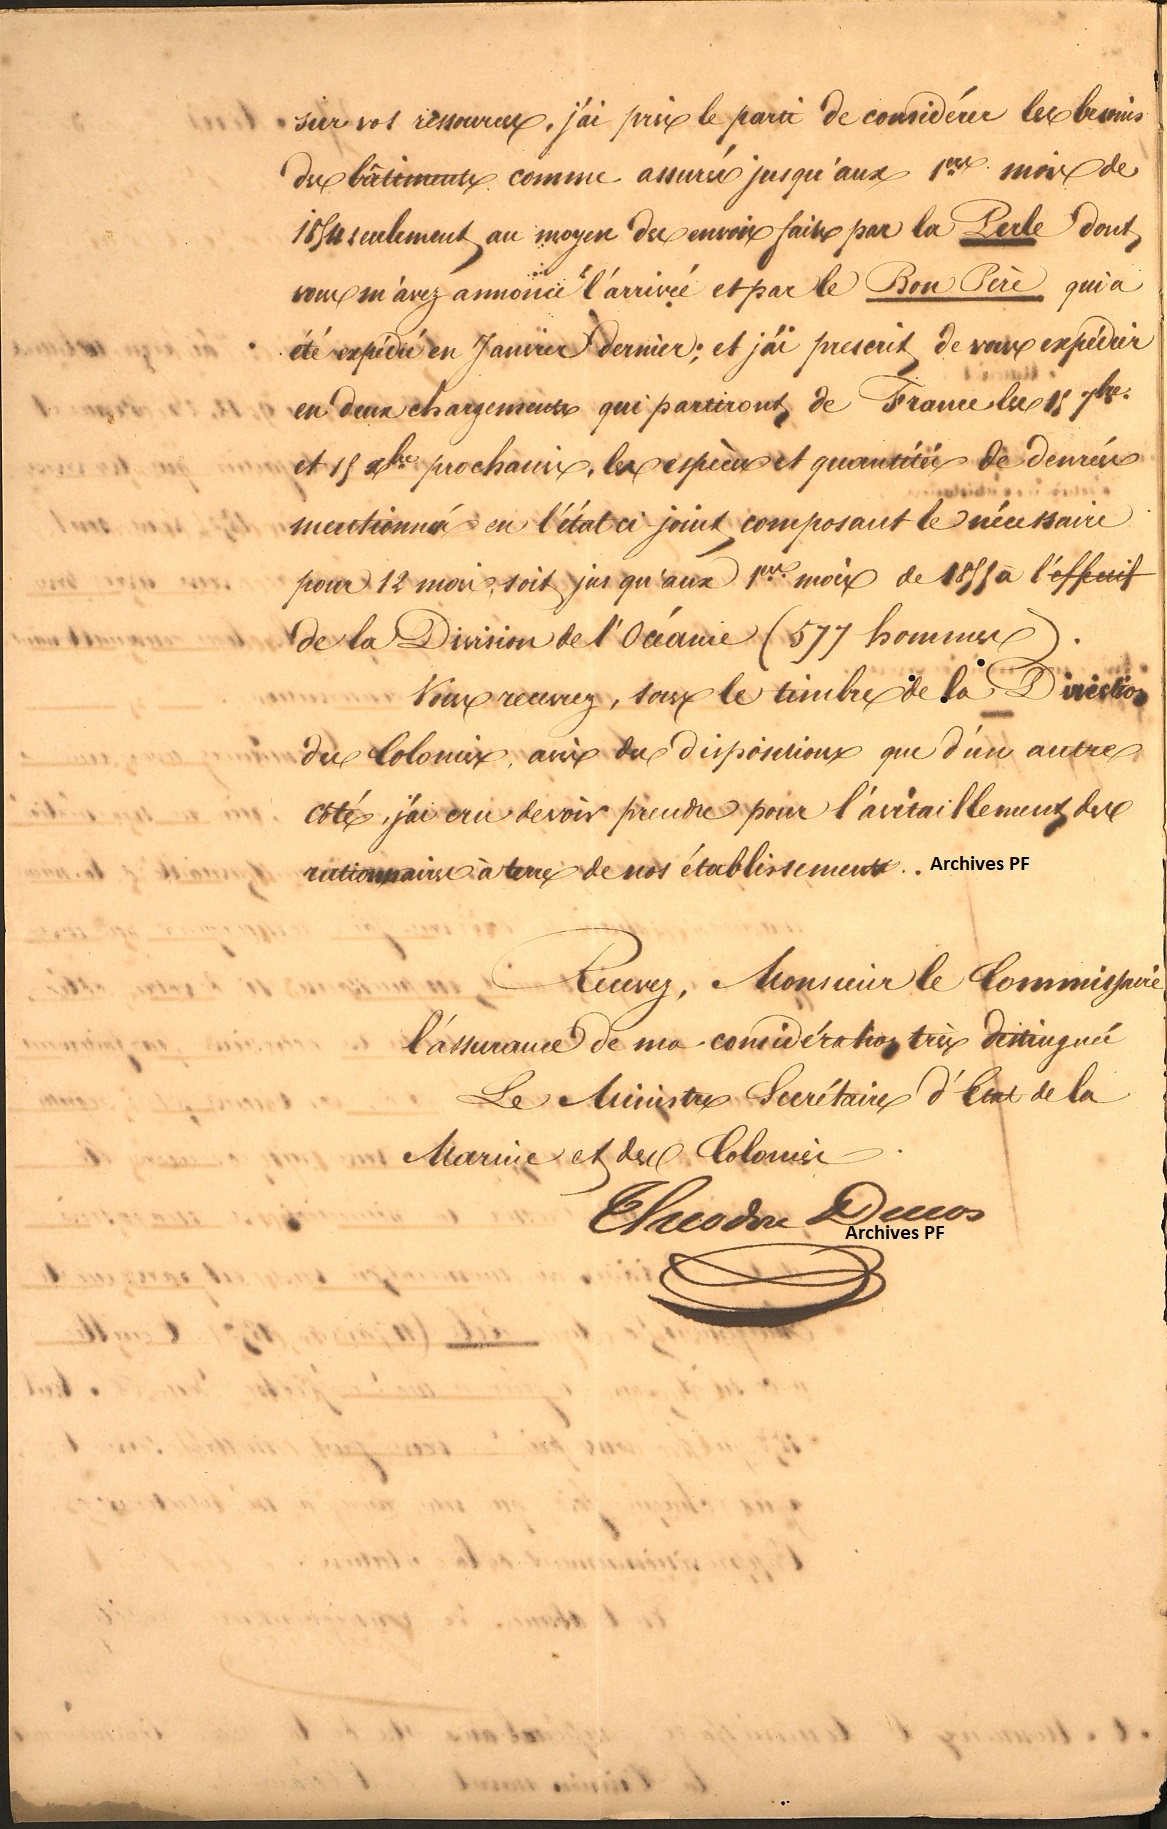 sur vos ressources, j'ai pris le parti de considérer les besoins
des bâtiments comme assurés jusqu'aux 1ers mois de
1854 seulement au moyen des envois faits par la Perle dont
vous m'avez annoncé l'arrivée et par le Bon Père qui a
été expédié en Janvier dernier; et j'ai prescrit de vous expédier
en deux chargements qui partiront de France les 15 7bre
et 15 xbre prochains, les espèces et quantités de denrées
mentionnées en l'état ci joint composant le nécessaire
pour 12 mois, soit jusqu'aux 1ers mois de 1855 à l'effectif
de la Division de l'Océanie (577 hommes).
Vous recevrez, sous le timbre de la Direction
des Colonies, avis des dispositions que d'un autre
côté, j'ai cru devoir prendre pour l'avitaillement des
rationnaires à terre de nos établissements.. Archives PF
Recevez, Monsieur le Commissaire
l'assurance de ma considération très distinguée
Le Ministre Secrétaire d'Etat de la
Marine et des Colonies
Theodore Ducos
Archives PF